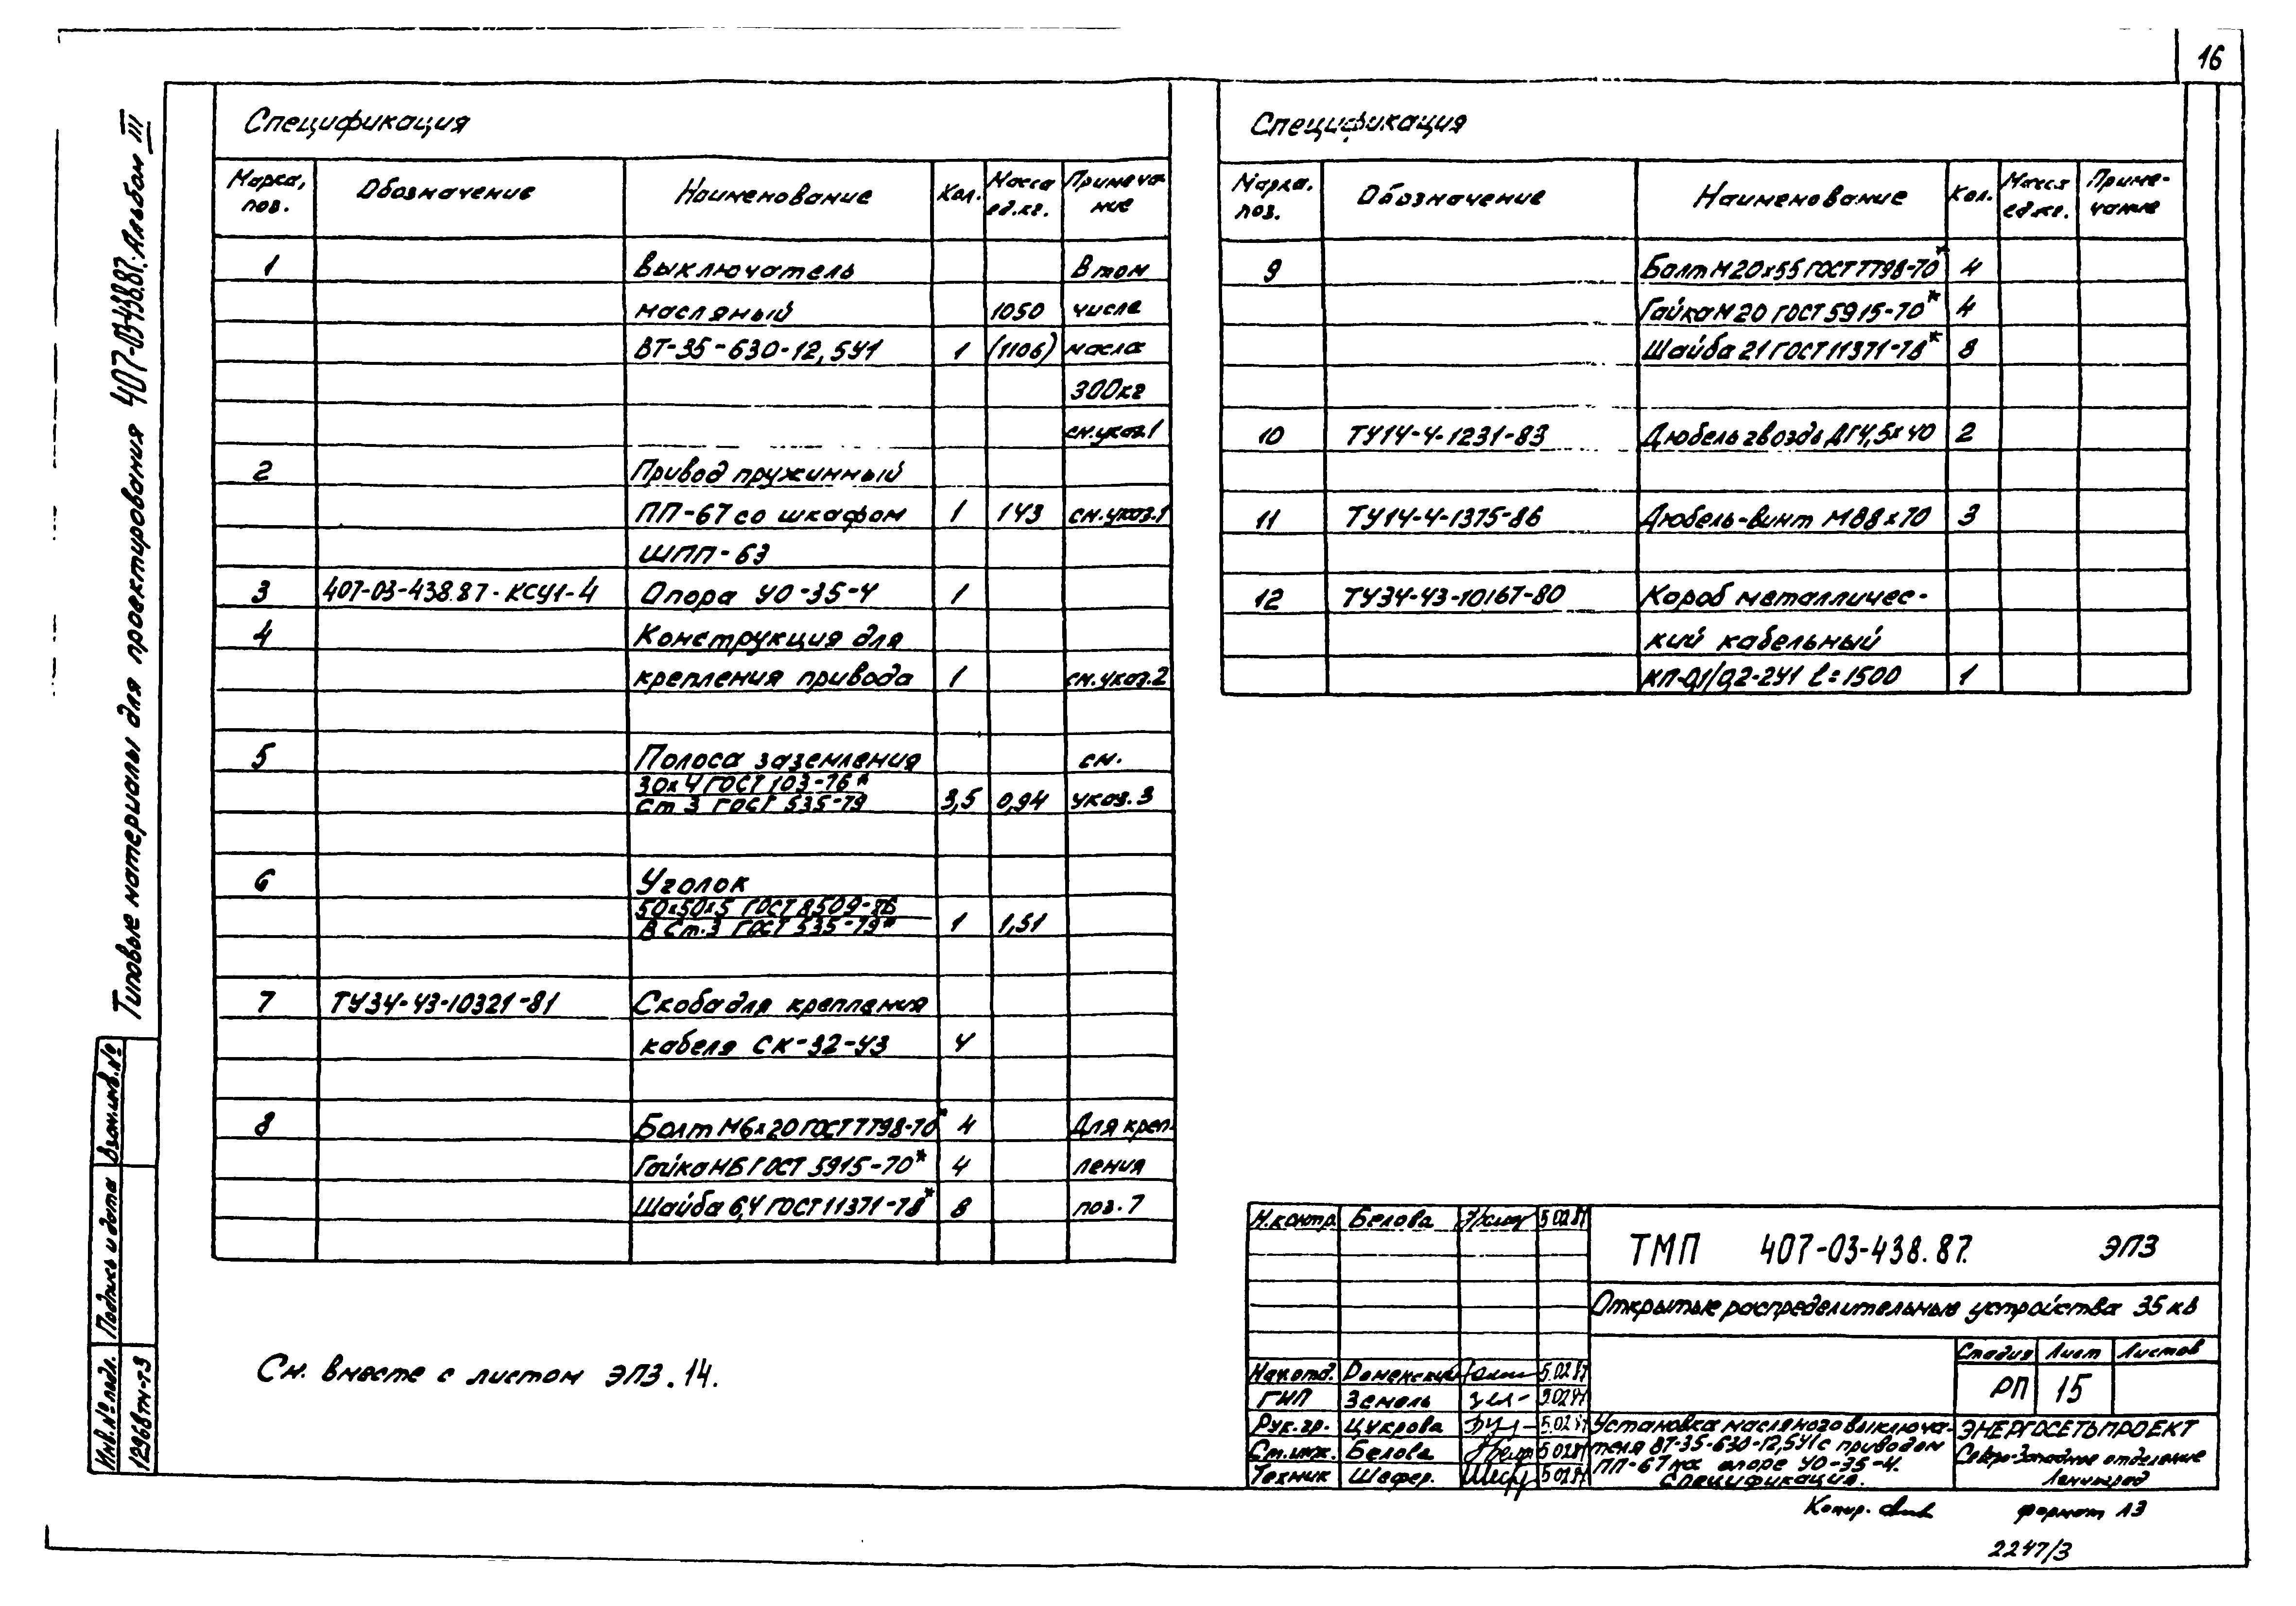 16
Типовые материалы для проектирования 407-03-438.87. Альбом III
Спецификация
Марка, поз. Обозначение Наименование Кол. Масса ед.кг. Примечание
1 Выключатель В том
масляный 1050 числе
ВТ-35-630-12,5У1 1 (1106) масла
300кг
см.указ.1
2 Привод пружинный
ПП-67 со шкафом 1 143 см.указ.1
ШПП-63
3 407-03-438.87-КСУ1-4 Опора УО-35-4 1
4 Конструкция для
крепления привода 1 см.указ.2
5 Полоса заземления см.
30х4 ГОСТ 103-76*
Ст 3 ГОСТ 535-79 3,5 0,94 указ.3
6 Уголок
50х50х5 ГОСТ 8509-76
В Ст.3 ГОСТ 535-79* 1 1,51
7 ТУ34-43-10321-81 Скоба для крепления
кабеля СК-32-У3 4
8 Болт М6х20 ГОСТ 7798-70* 4 Для креп-
Гайка М6 ГОСТ 5915-70* 4 ления
Шайба 6,4 ГОСТ 11371-78* 8 поз.7
См. вместе с листом ЭП3.14.
Спецификация
Марка. поз. Обозначение Наименование Кол. Масса ед.кг. Приме-чание
9 Болт М20х55 ГОСТ 7798-70* 4
Гайка М20 ГОСТ 5915-70* 4
Шайба 21 ГОСТ 11371-78* 8
10 ТУ14-4-1231-83 Дюбель гвоздь ДГ4,5х40 2
11 ТУ14-4-1375-86 Дюбель-винт М8 8х70 3
12 ТУ34-43-10167-80 Короб металличес-
кий кабельный
КП-0,1/0,2-2У1 l=1500 1
Н.контр. Белова 5.02.87
ТМП 407-03-438.87. ЭП3
Открытые распределительные устройства 35 кв
Стадия Лист Листов
РП 15
Нач.отд. Роменский 5.02.87
ГИП Земель 5.02.87
Рук.гр. Цукрова 5.02.87
Ст.инж. Белова 5.02.87
Техник Шефер. 5.02.87
Установка масляного выключа-
теля ВТ-35-630-12,5У1 с приводом
ПП-67 на опоре УО-35-4.
Спецификация.
ЭНЕРГОСЕТЬПРОЕКТ
Северо-Западное отделение
Ленинград
Копир.
формат А3
2247/3
Взам.инв.№
Подпись и дата
Инв.№ подл.
12968тм-т3